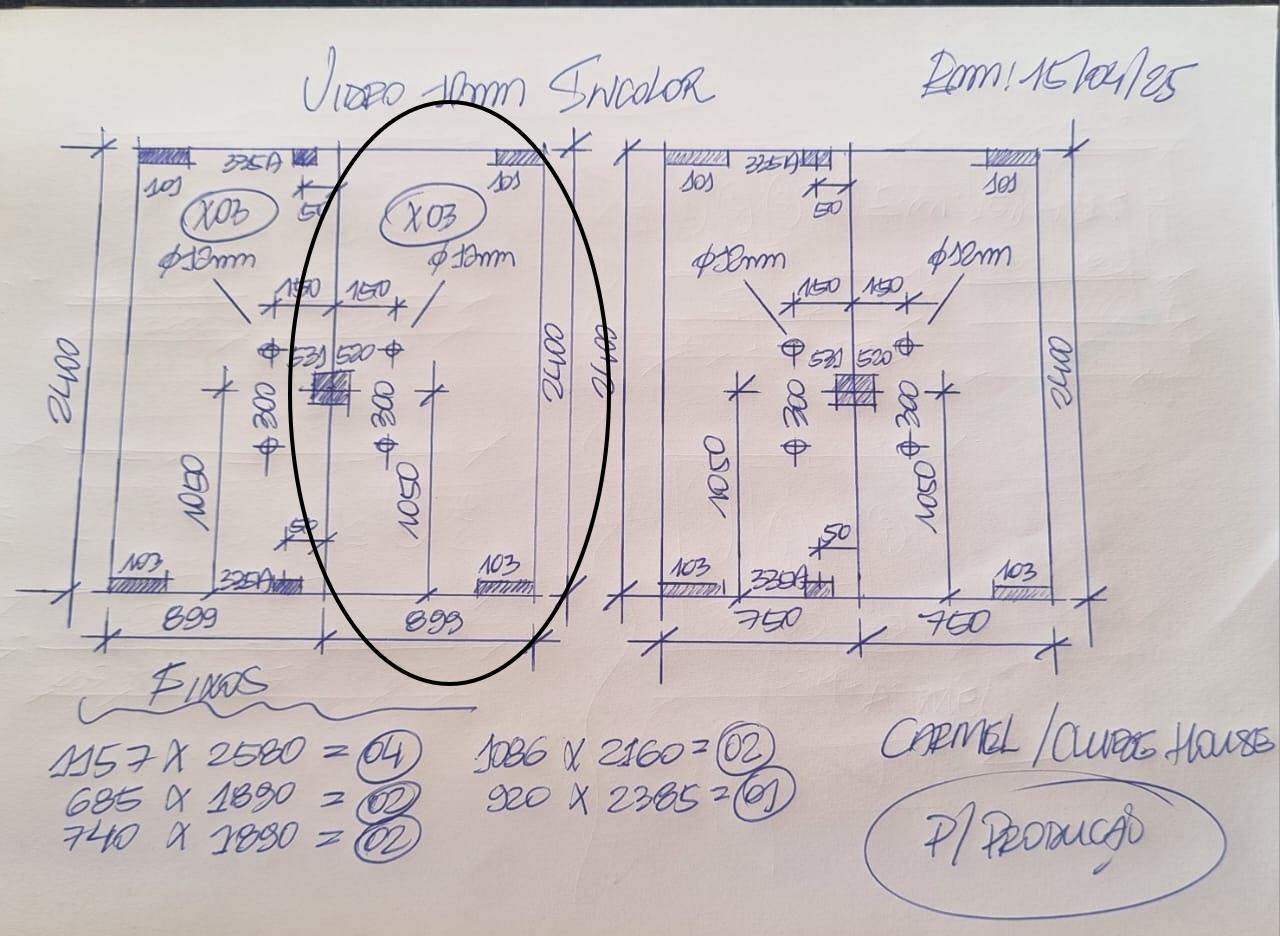 VIDRO 10mm INCOLOR
15/04/25
101 335A 101 101 335A 101
50 50
X03 X03
φ12mm φ12mm φ12mm φ12mm
150 150 150 150
531 520 531 520
2400 2400 2400 2400
300 300 300 300
1050 1050 1050 1050
50 50
103 335A 103 103 335A 103
899 899 750 750
FIXOS
1157 X 2580 = 04
685 X 1890 = 02
740 X 1890 = 02
1086 X 2160 = 02
920 X 2385 = 01
CARMEL / HOUSE
P/ PRODUÇÃO